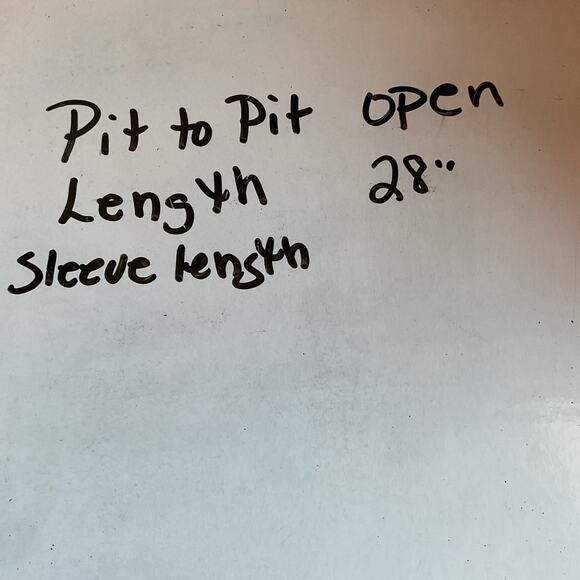 Pit to Pit open
Length 28"
Sleeve length